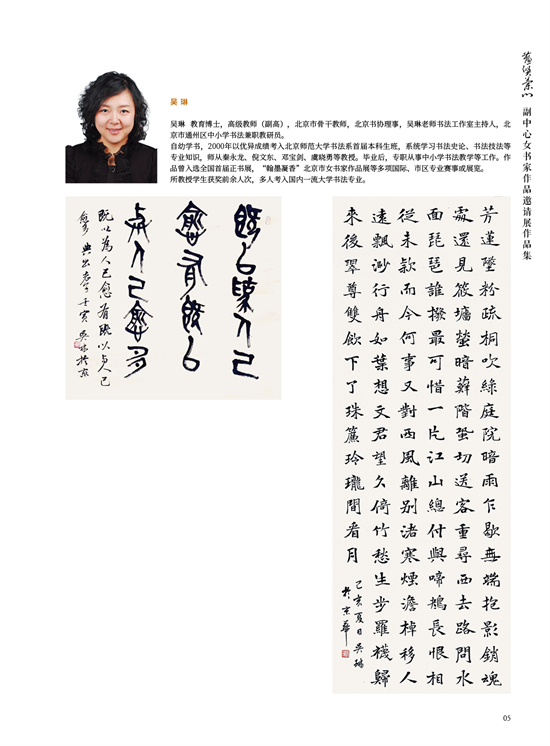 吴 琳
吴琳 教育博士，高级教师（副高），北京市骨干教师，北京书协理事，吴琳老师书法工作室主持人，北
京市通州区中小学书法兼职教研员。
自幼学书，2000年以优异成绩考入北京师范大学书法系首届本科生班，系统学习书法史论、书法技法等
专业知识，师从秦永龙、倪文东、邓宝剑、虞晓勇等教授。毕业后，专职从事中小学书法教学等工作。作
品曾入选全国首届正书展，“翰墨凝香”北京市女书家作品展等多项国际、市区专业赛事或展览。
所教授学生获奖前余人次，多人考入国内一流大学书法专业。
副中心女书家作品邀请展作品集
既以為人己
愈有既以
与人己愈多
既以為人己愈有既以与人己
愈多 典出老子 壬寅 吴琳於京
芳蓮墜粉疏桐吹綠庭院暗雨乍歇無端抱影銷魂
處還見筱墻螢暗蘚階蛩切送客重尋西去路問水
面琵琶誰撥最可惜一片江山總付與啼鴂長恨相
從未款而今何事又對西風離別渚寒煙澹棹移人
遠飄渺行舟如葉想文君望久倚竹愁生步羅襪歸
來後翠尊雙飲下了珠簾玲瓏間看月
己亥夏日吴琳
於京華
05